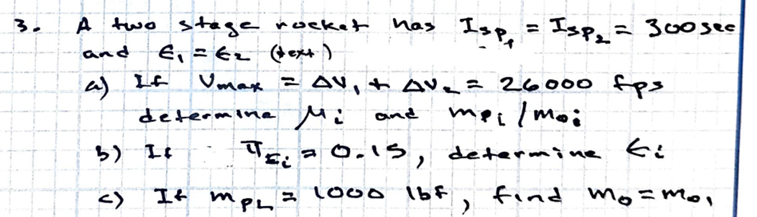 3. A two stage rocket has Isp₁ = Isp₂ = 300 sec
and ε₁ = ε₂ (text)
a) If Vmax = ΔV₁ + ΔV₂ = 26000 fps
determine μᵢ and mpᵢ/moᵢ
b) If πεᵢ = 0.15, determine εᵢ
c) If mpL = 1000 lbf, find mo = mo₁